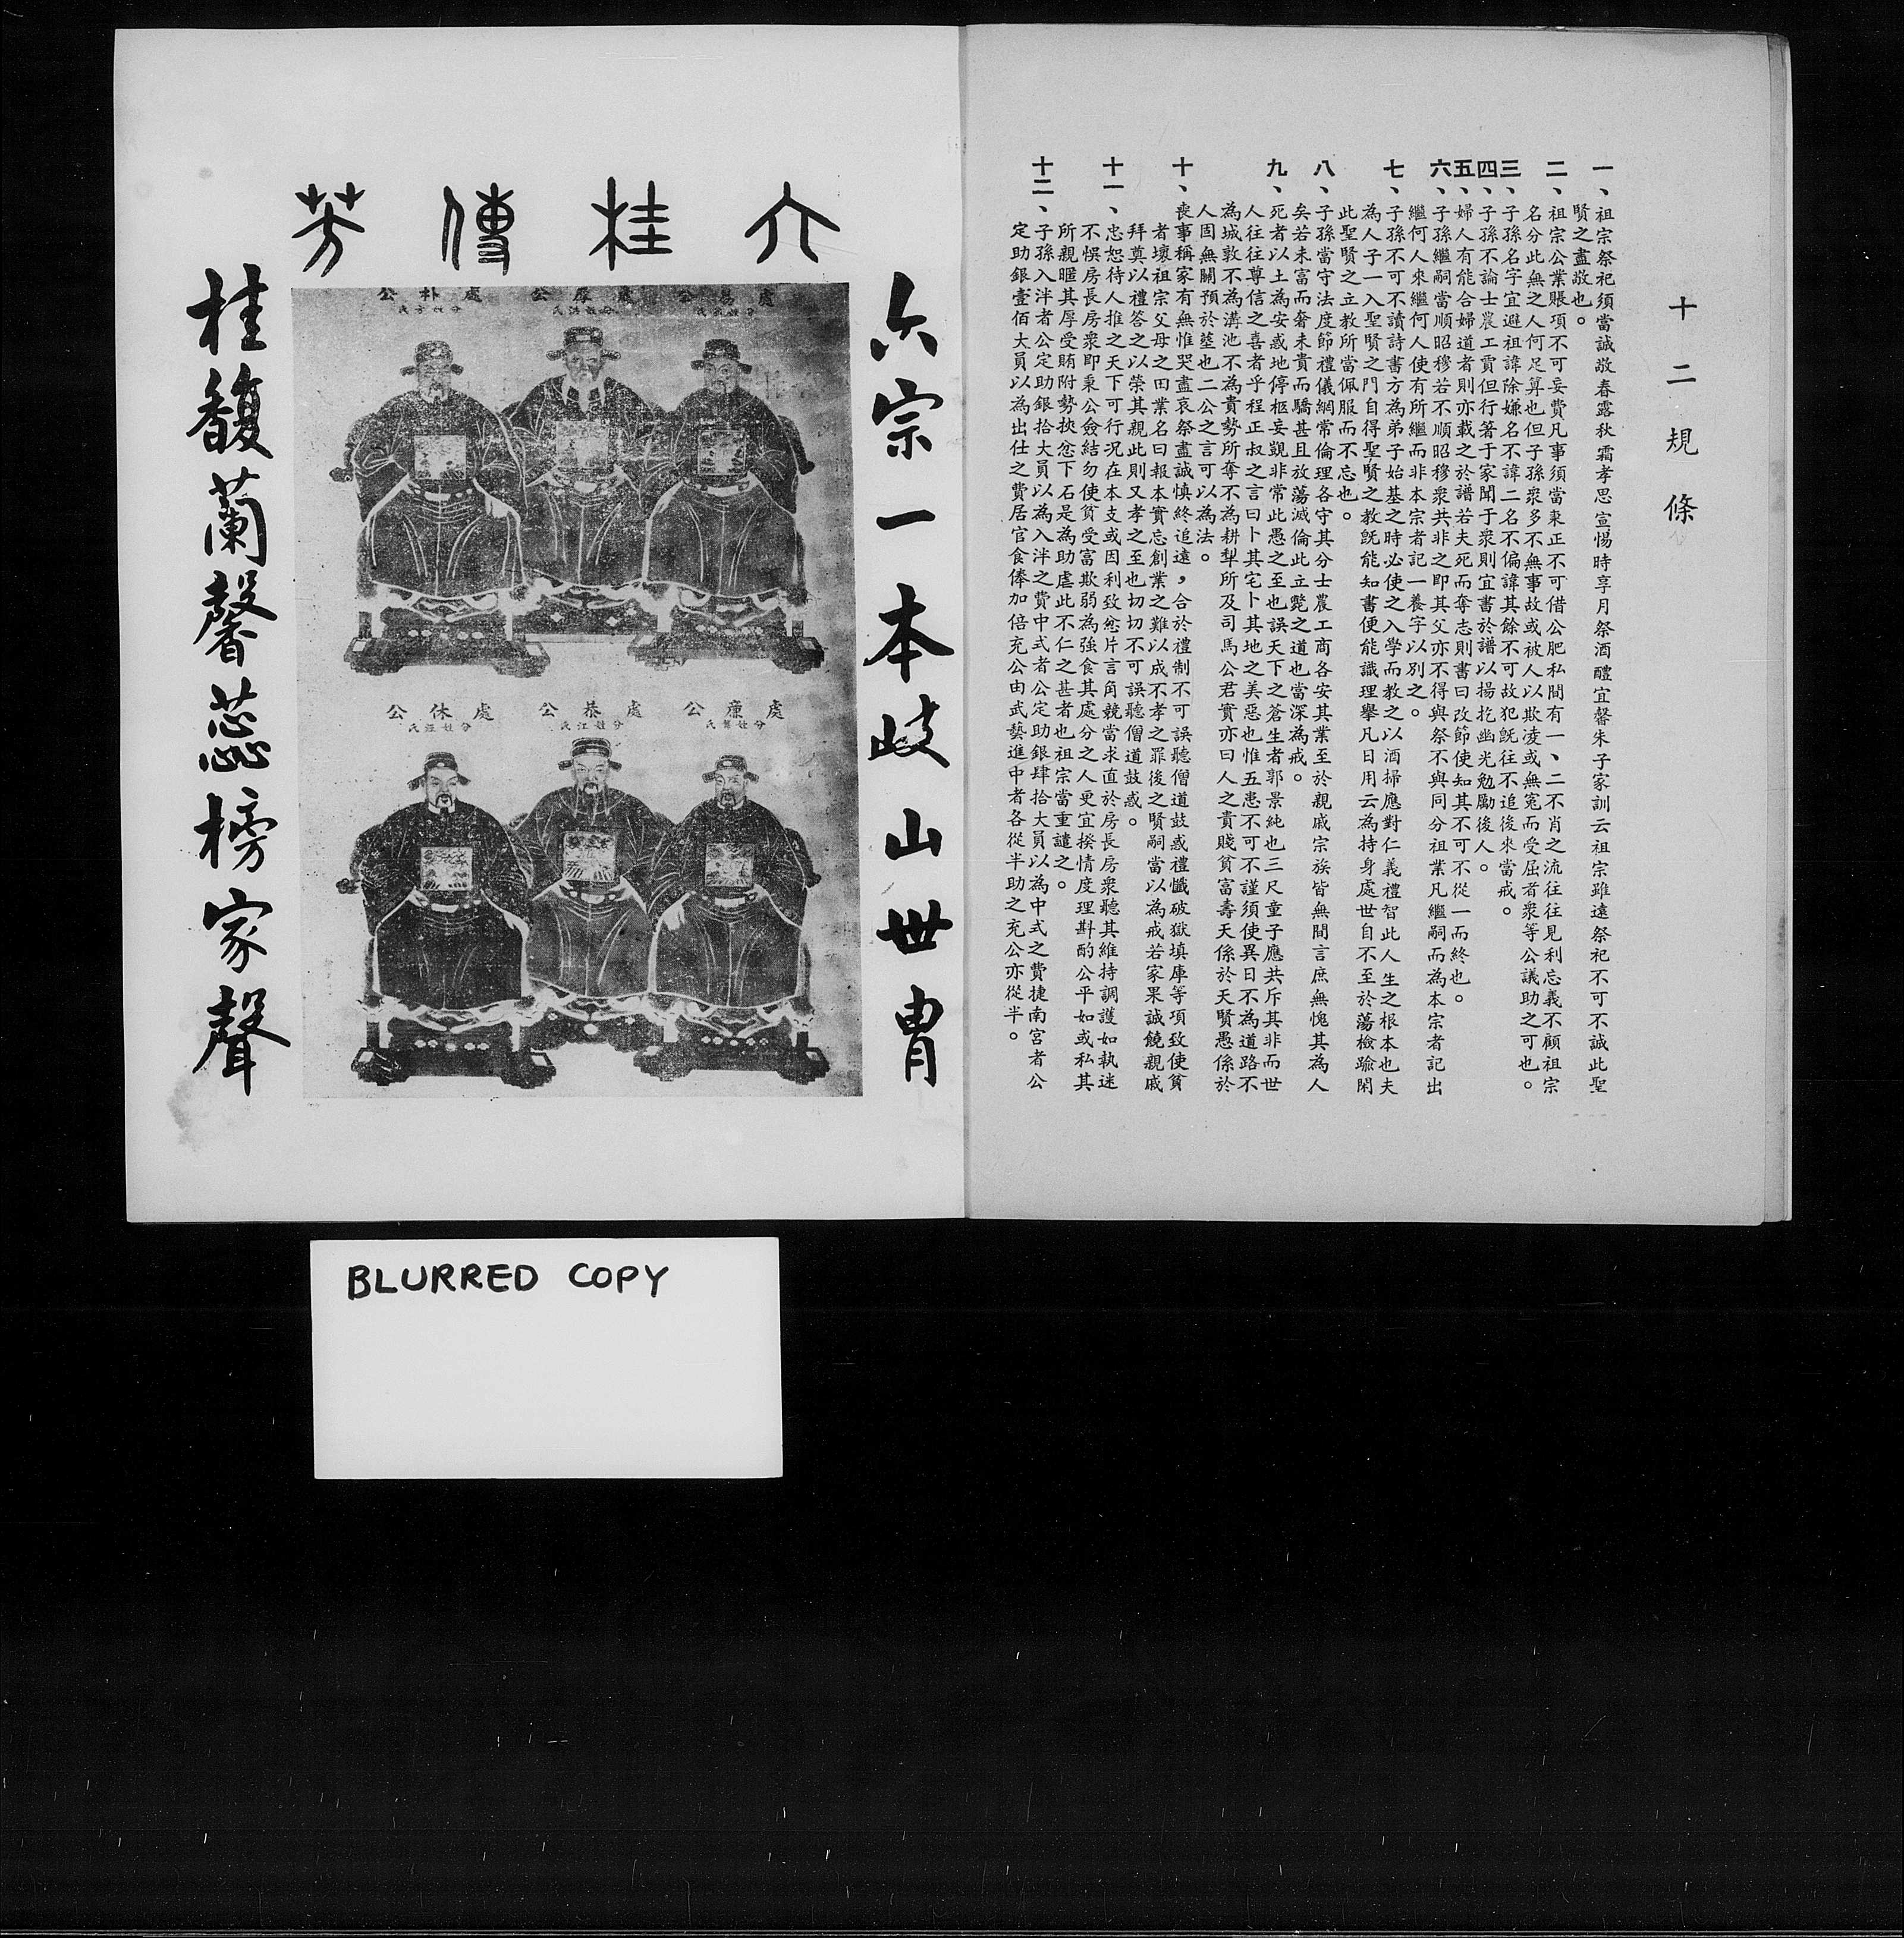 十二規條
一、祖宗祭祀須當誠敬春露秋霜孝思宣惕時享月祭酒醴宜馨朱子家訓云祖宗雖遠祭祀不可不誠此聖
賢之盡敬也。
二、祖宗公業賬項不可妄費凡事須當秉正不可借公肥私間有一、二不肖之流往往見利忘義不顧祖宗
名分此無之人何足算也但子孫衆多不無事故或被人以欺凌或無冤而受屈者衆等公議助之可也。
三、子孫名字宜避祖諱除嫌名不諱二名不偏諱其餘不可故犯既往不追後來當戒。
四、子孫不論士農工賈但行箸于家聞于衆則宜書於譜以揚扢幽光勉勵後人。
五、婦人有能合婦道者則亦載之於譜若夫死而奪志則書曰改節使知其不可不從一而終也。
六、子孫繼嗣當順昭穆若不順昭穆衆共非之即其父亦不得與祭不與同分祖業凡繼嗣而為本宗者記出
繼何人來繼何人使有所繼而非本宗者記一養字以別之。
七、子孫不可不讀詩書方為弟子始基之時必使之入學而教之以洒掃應對仁義禮智此人生之根本也夫
為人子一入聖賢之門自得聖賢之教既能知書便能識理舉凡日用云為持身處世自不至於蕩檢踰閑
此聖賢之立教所當佩服而不忘也。
八、子孫當守法度節禮儀綱常倫理各守其分士農工商各安其業至於親戚宗族皆無間言庶無愧其為人
矣若未富而奢未貴而驕甚且放蕩滅倫此立斃之道也當深為戒。
九、死者以土為安惑地停柩妄覬非常此愚之至也誤天下之蒼生者郭景純也三尺童子應共斥其非而世
人往往尊信之喜者乎程正叔之言曰卜其宅卜其地之美惡也惟五患不可不謹須使異日不為道路不
為城敦不為溝池不為貴勢所奪不為耕犁所及司馬公君實亦曰人之貴賤貧富壽夭係於天賢愚係於
人固無關預於塟也二公之言可以為法。
十、喪事稱家有無惟哭盡哀祭盡誠慎終追遠，合於禮制不可誤聽僧道鼓惑禮懺破獄填庫等項致使貧
者壞祖宗父母之田業名曰報本實忘創業之難以成不孝之罪後之賢嗣當以為戒若家果誠饒親戚
拜奠以禮答之以榮其親此則又孝之至也切切不可誤聽僧道鼓惑。
十一、忠恕待人推之天下可行況在本支或因利致忿片言角競當求直於房長房衆聽其維持調護如執迷
不悞房長房衆即秉公僉結勿使貧受富欺弱為強食其處分之人更宜揆情度理斟酌公平如或私其
所親暱其厚受賄附勢挾忿下石是為助虐此不仁之甚者也祖宗當重譴之。
十二、子孫入泮者公定助銀拾大員以為入泮之費中式者公定助銀肆拾大員以為中式之費捷南宮者公
定助銀壹佰大員以為出仕之費居官食俸加倍充公由武藝進中者各從半助之充公亦從半。
六桂傳芳
六宗一本岐山世胄
處易公
處厚公
處朴公
處廉公
處恭公
分姓江氏
處休公
分姓汪氏
桂馥蘭馨蕊榜家聲
BLURRED COPY